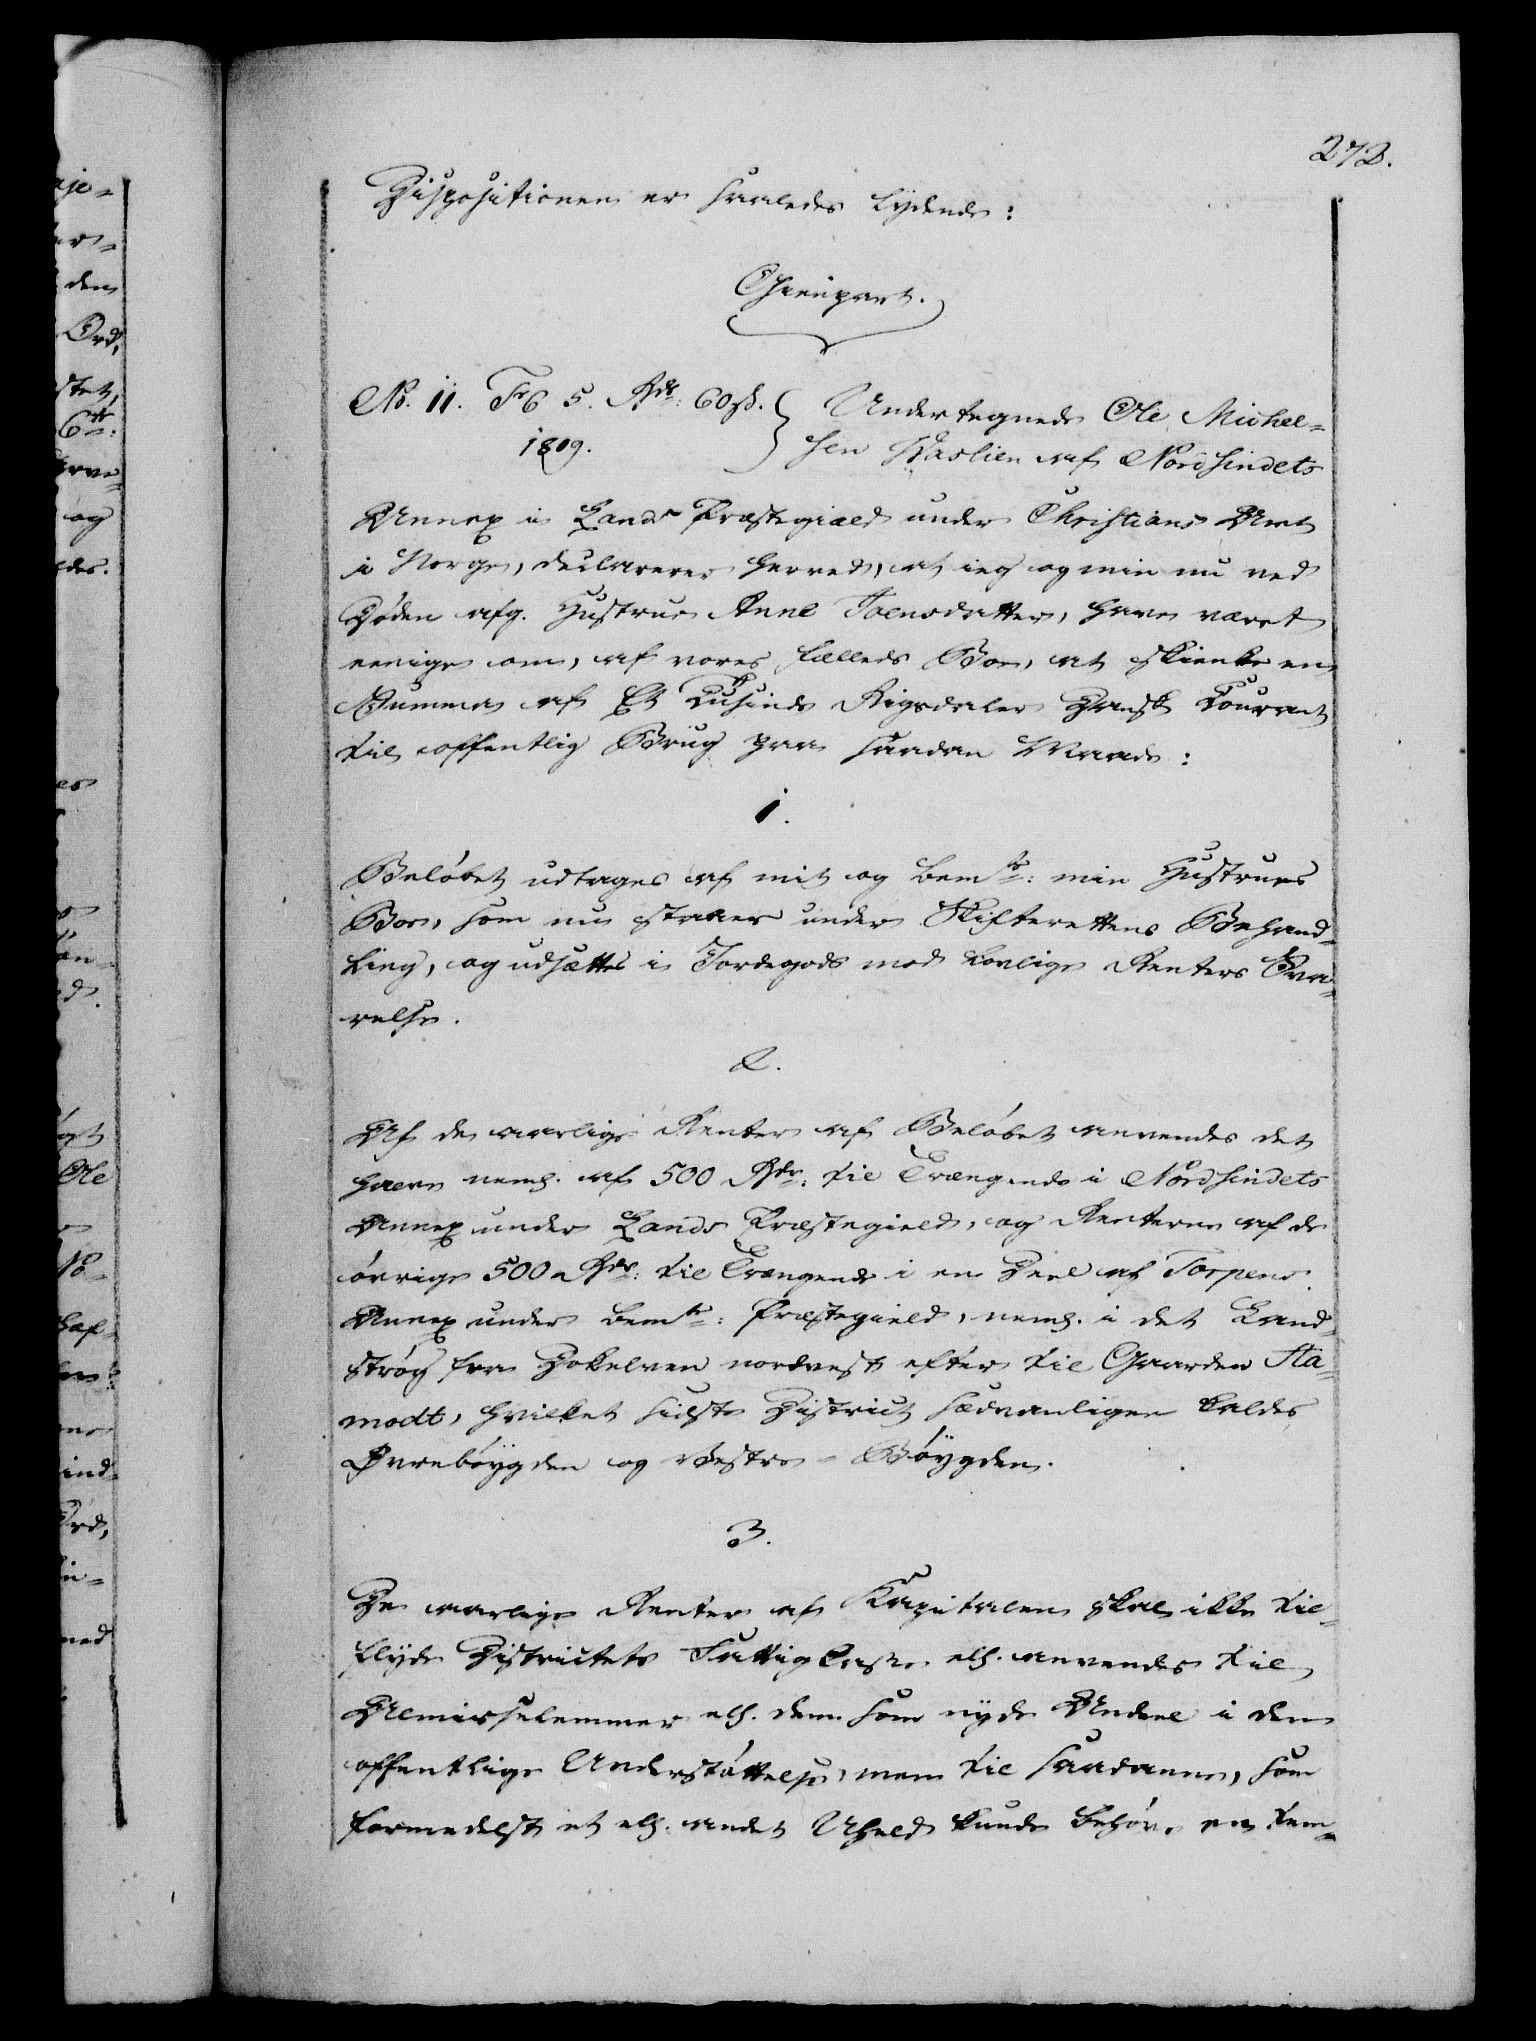 272.
Dispositionen er saaledes lydende:
Gjenpart.
No. 11. Fr6 5. Rdr: 60 s. Undertegnede Ole Michel-
1809. sen Haslien af Nordsindets
Annex i Lands Præstegiæld under Christians Amt
i Norge, declarerer herved, at ieg og min nu ved
Døden afg. Hustrue Anne Joensdatter, have været
eenige om, af vores fælleds Boe, at skienke en
Summa af Et Tusinde Rigsdaler Dansk Courant
til offentlig Brug paa saadan Maade:
1.
Beløbet udtages af mit og bemte: min Hustrues
Boe, som nu staaer under Skifterettens Behand-
ling, og udsættes i Jordegods mod lovlige Renters Sva-
relse.
2.
Af de aarlige Renter af Beløbet anvendes det
halve neml. af 500 Rdr: til Trængende i Nordsindets
Annex under Lands Præstegield, og Renterne af de
øvrige 500 Rdr: til Trængende i en Deel af Torpens
Annex under bemte: Præstegield, neml. i det Land-
strøg fra Dokelven nordvest efter til Gaarden Ha-
modt, hvilket sidste District sædvanligen kaldes
Øvrebøygden og Vestre-Bøygden.
3.
De aarlige Renter af Kapitalen skal ikke til-
flyde Districtets Fattigkasse ell. anvendes til
Almisselemmer ell. dem som nyde Andeel i den
offentlige Understøttelse, men til saadanne, som
formedelst et ell. andet Uheld kunde behøve en tem-